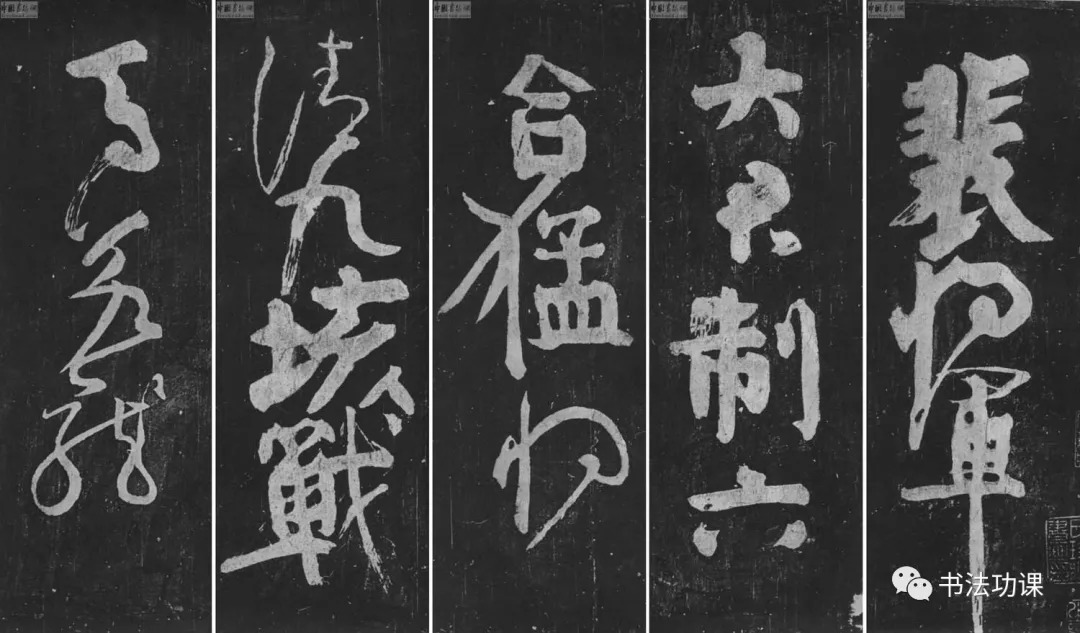 裴将軍
大君制六
合猛将
清九垓戰
馬若龍
书法功课